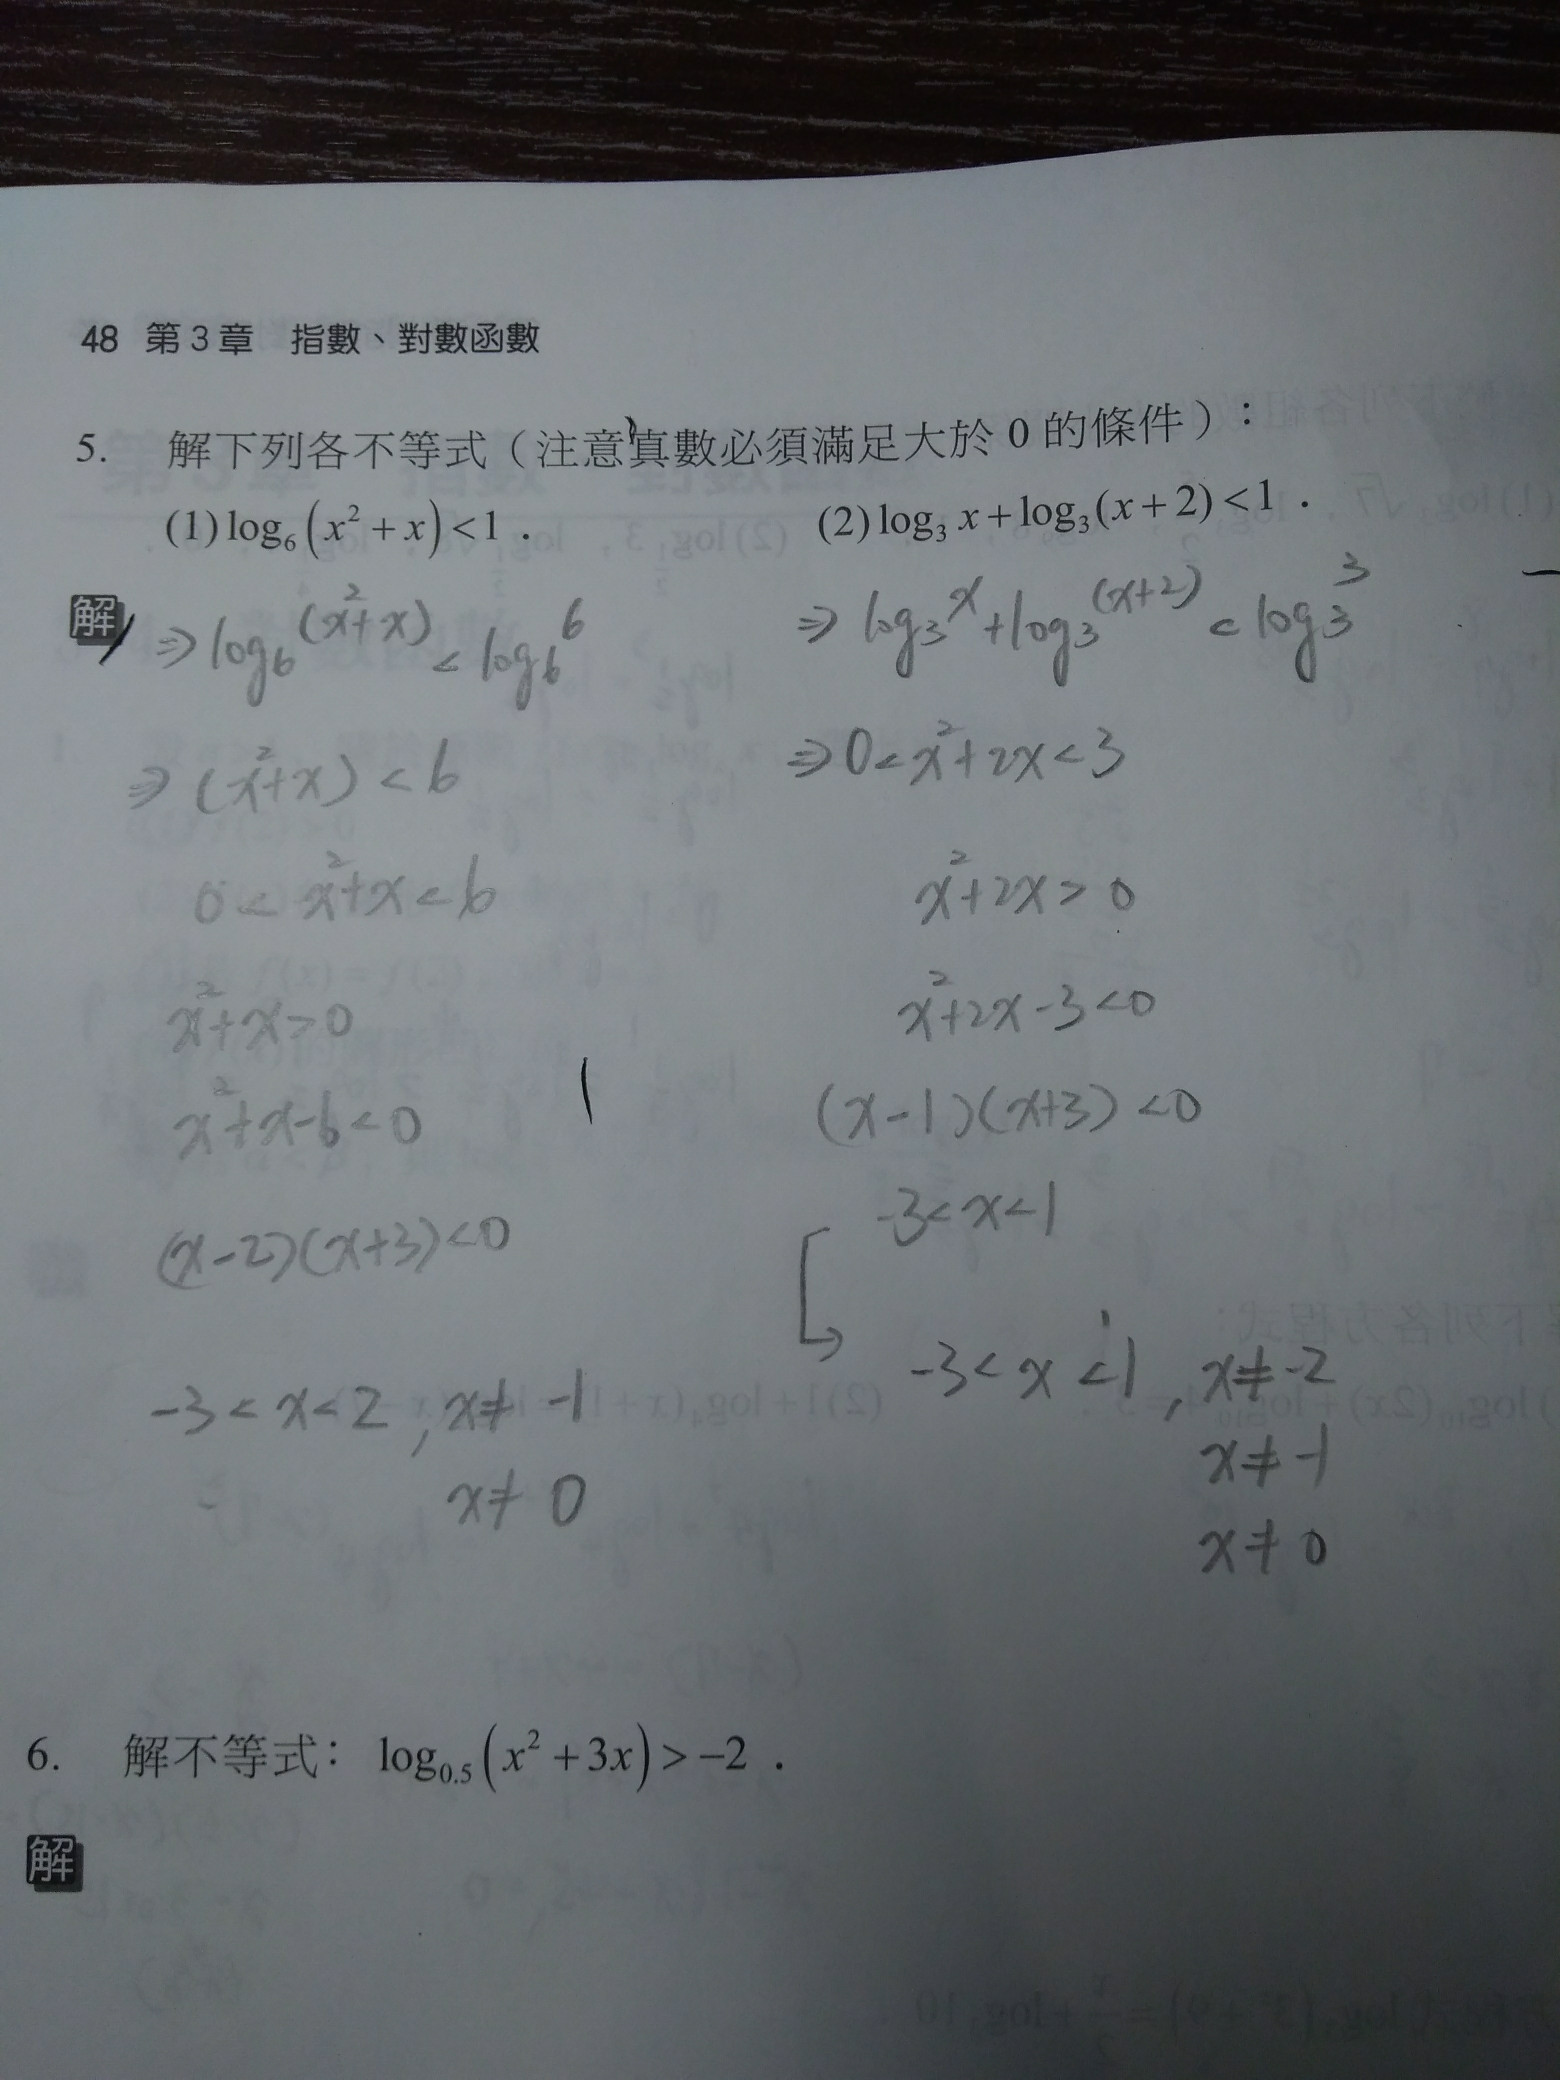 48 第3章 指數、對數函數
5. 解下列各不等式（注意真數必須滿足大於0的條件）：
(1) log₆(x²+x)<1．
(2) log₃ x+log₃(x+2)<1．
解
⇒ log₆^(x²+x) < log₆^6
⇒ (x²+x) < 6
0 < x²+x < 6
x²+x>0
x²+x-6<0
(x-2)(x+3)<0
-3<x<2, x≠-1
x≠0
⇒ log₃^x+log₃^(x+2) < log₃^3
⇒ 0<x²+2x<3
x²+2x>0
x²+2x-3<0
(x-1)(x+3)<0
-3<x<1
-3<x<1, x≠-2
x≠-1
x≠0
6. 解不等式：log₀.₅(x²+3x)>-2．
解